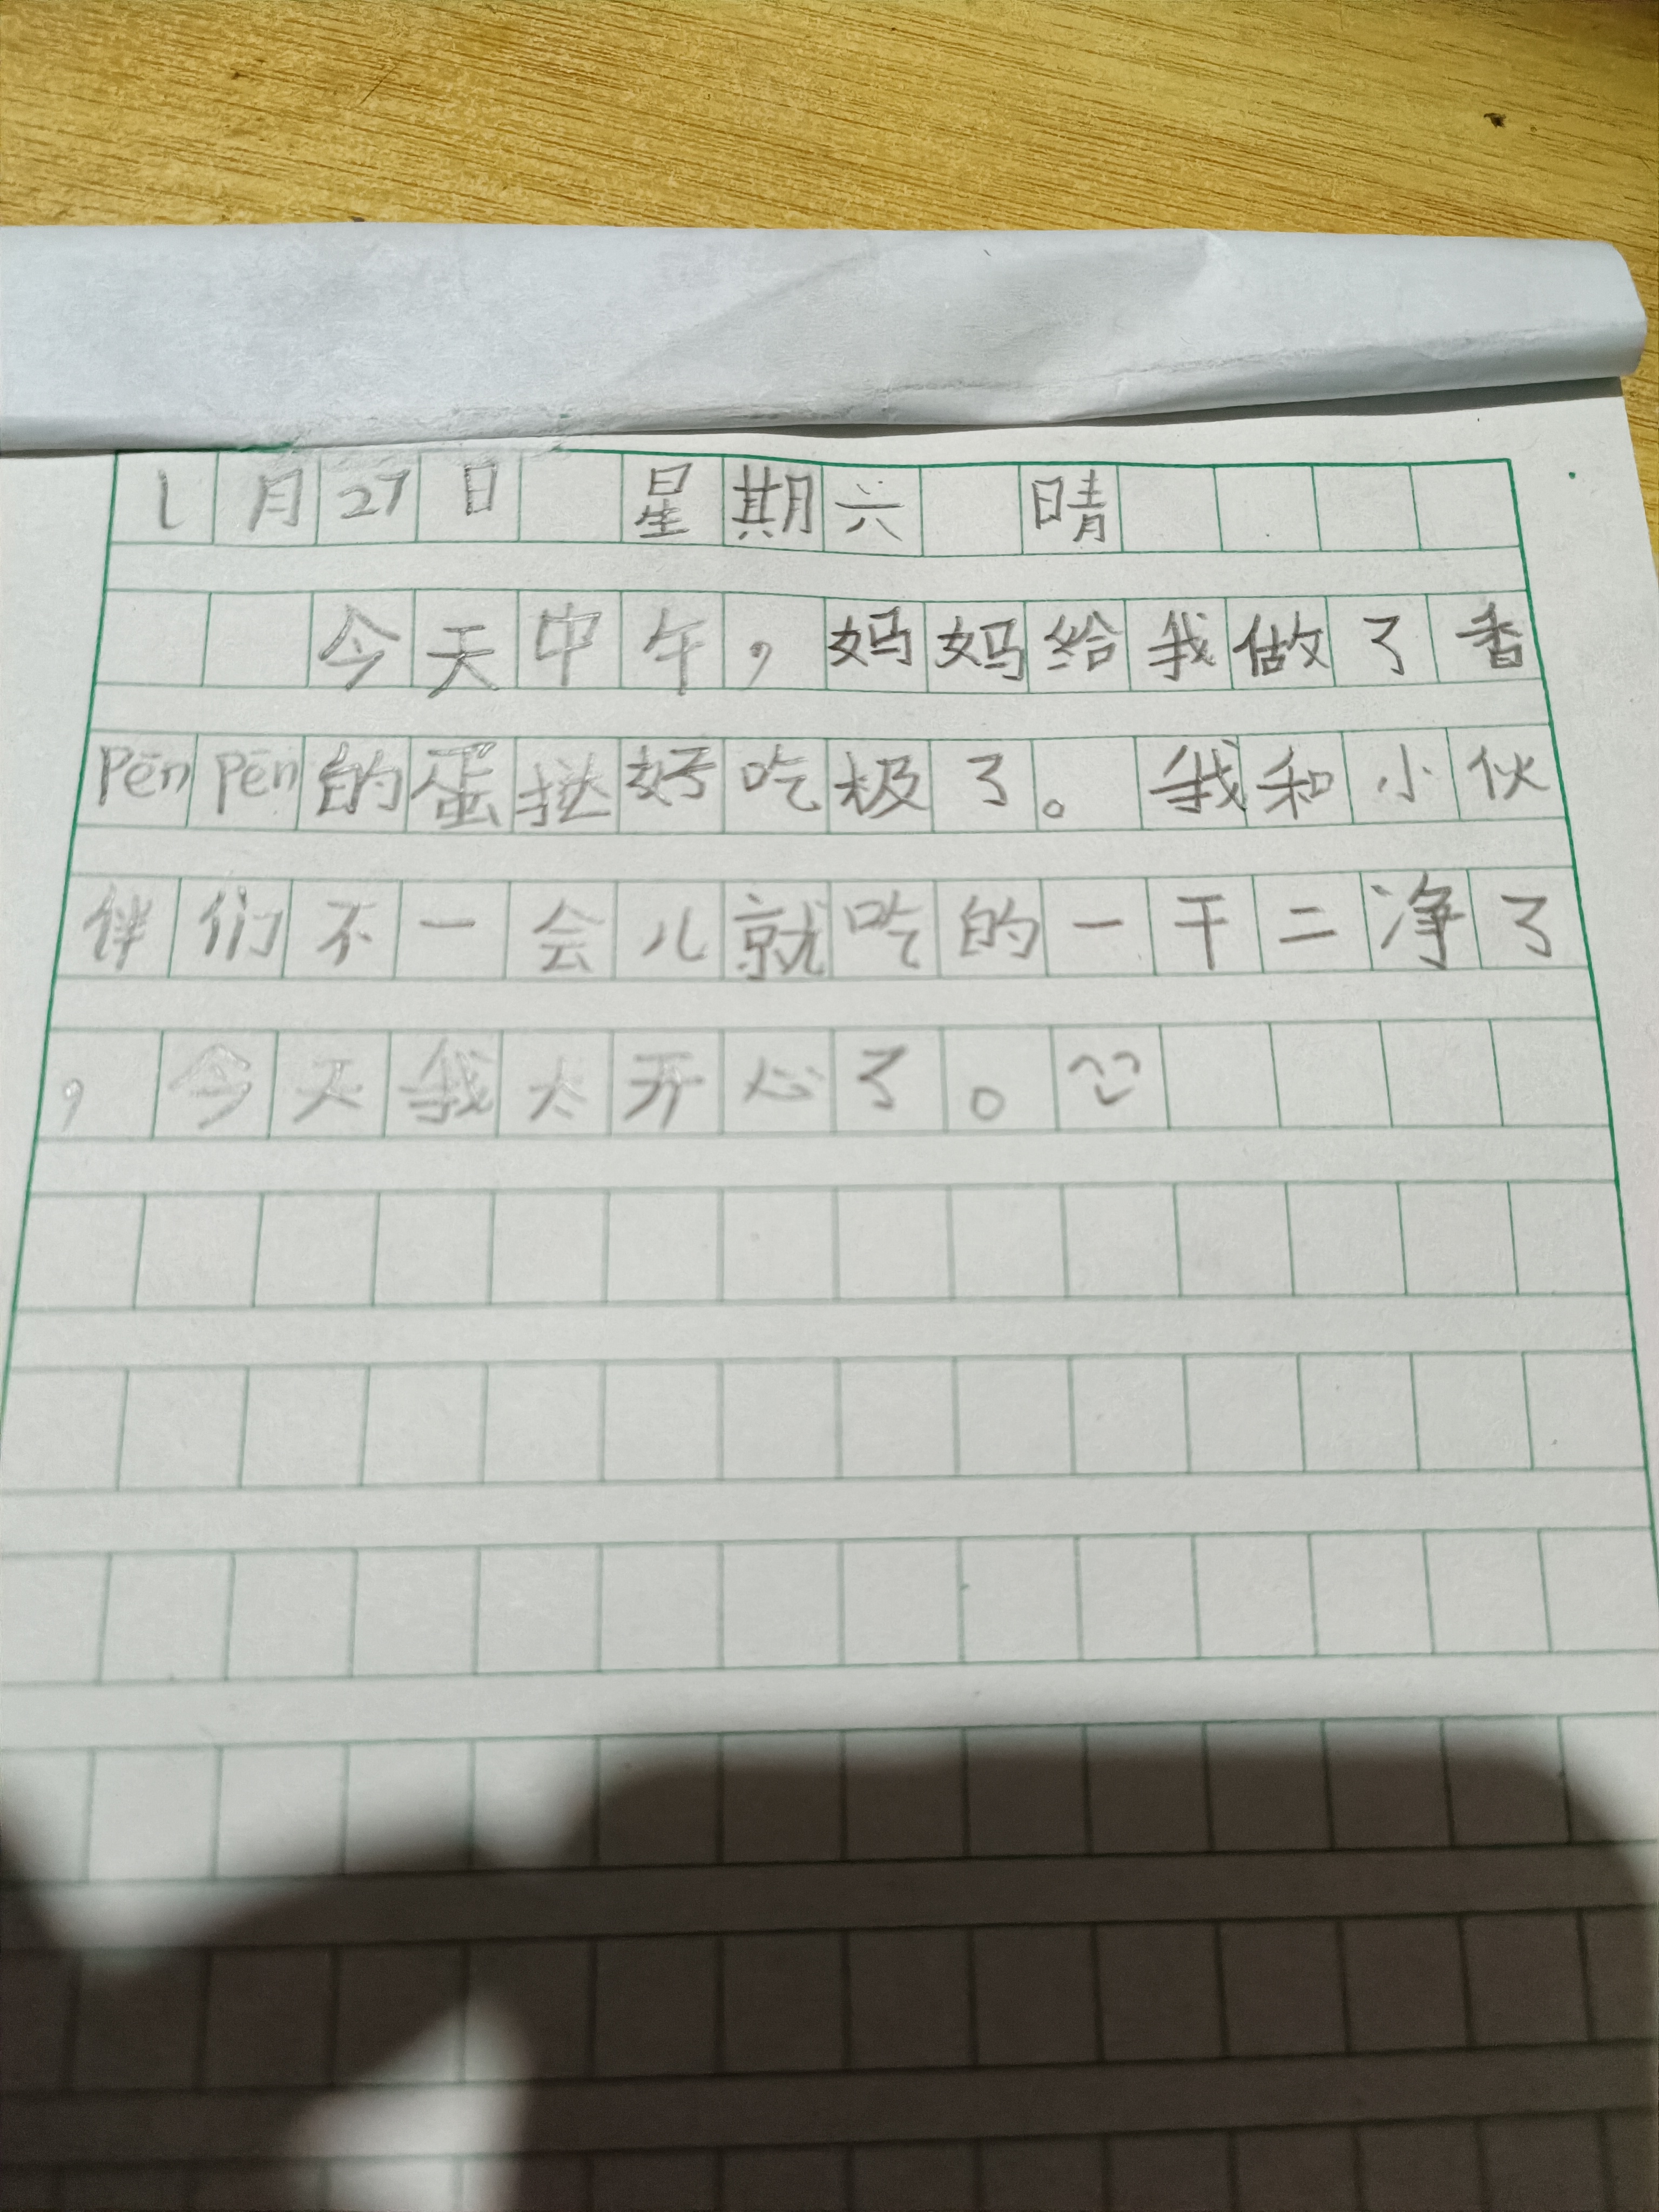 1月27日 星期六 晴
今天中午，妈妈给我做了香
pēn pēn的蛋挞好吃极了。我和小伙
伴们不一会儿就吃的一干二净了
，今天我太开心了。